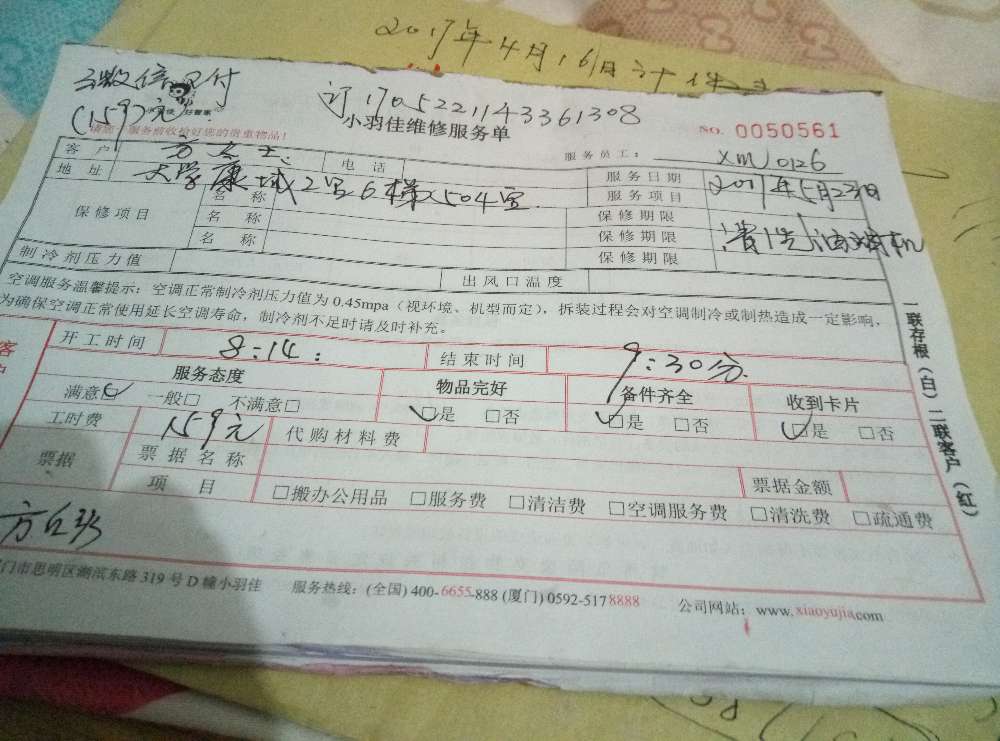 2017年4月16日计
微信已付
(159)元
订1705221143361308
请您在服务前收拾好您的贵重物品!
小羽佳维修服务单
NO. 0050561
客 户 方女士 电 话 服务员工: XM0126
地 址 大学康城2号6梯504室 服务日期 2017年5月23日
服务项目 清洗油烟机
保修项目 名 称 保修期限
名 称 保修期限
名 称 保修期限
制冷剂压力值 出风口温度
空调服务温馨提示: 空调正常制冷剂压力值为 0.45mpa (视环境、机型而定), 拆装过程会对空调制冷或制热造成一定影响,
为确保空调正常使用延长空调寿命, 制冷剂不足时请及时补充。
开工时间 8:14 结束时间 9:30分
服务态度 物品完好 备件齐全 收到卡片
满意□ 一般□ 不满意□ □是 □否 □是 □否 □是 □否
工时费 159元 代购材料费
票据 票据名称 票据金额
项 目 □搬办公用品 □服务费 □清洁费 □空调服务费 □清洗费 □疏通费
一联存根(白) 二联客户(红)
门市思明区湖滨东路 319 号 D 幢小羽佳 服务热线: (全国) 400-6655-888 (厦门) 0592-5178888 公司网站: www.xiaoyujia.com